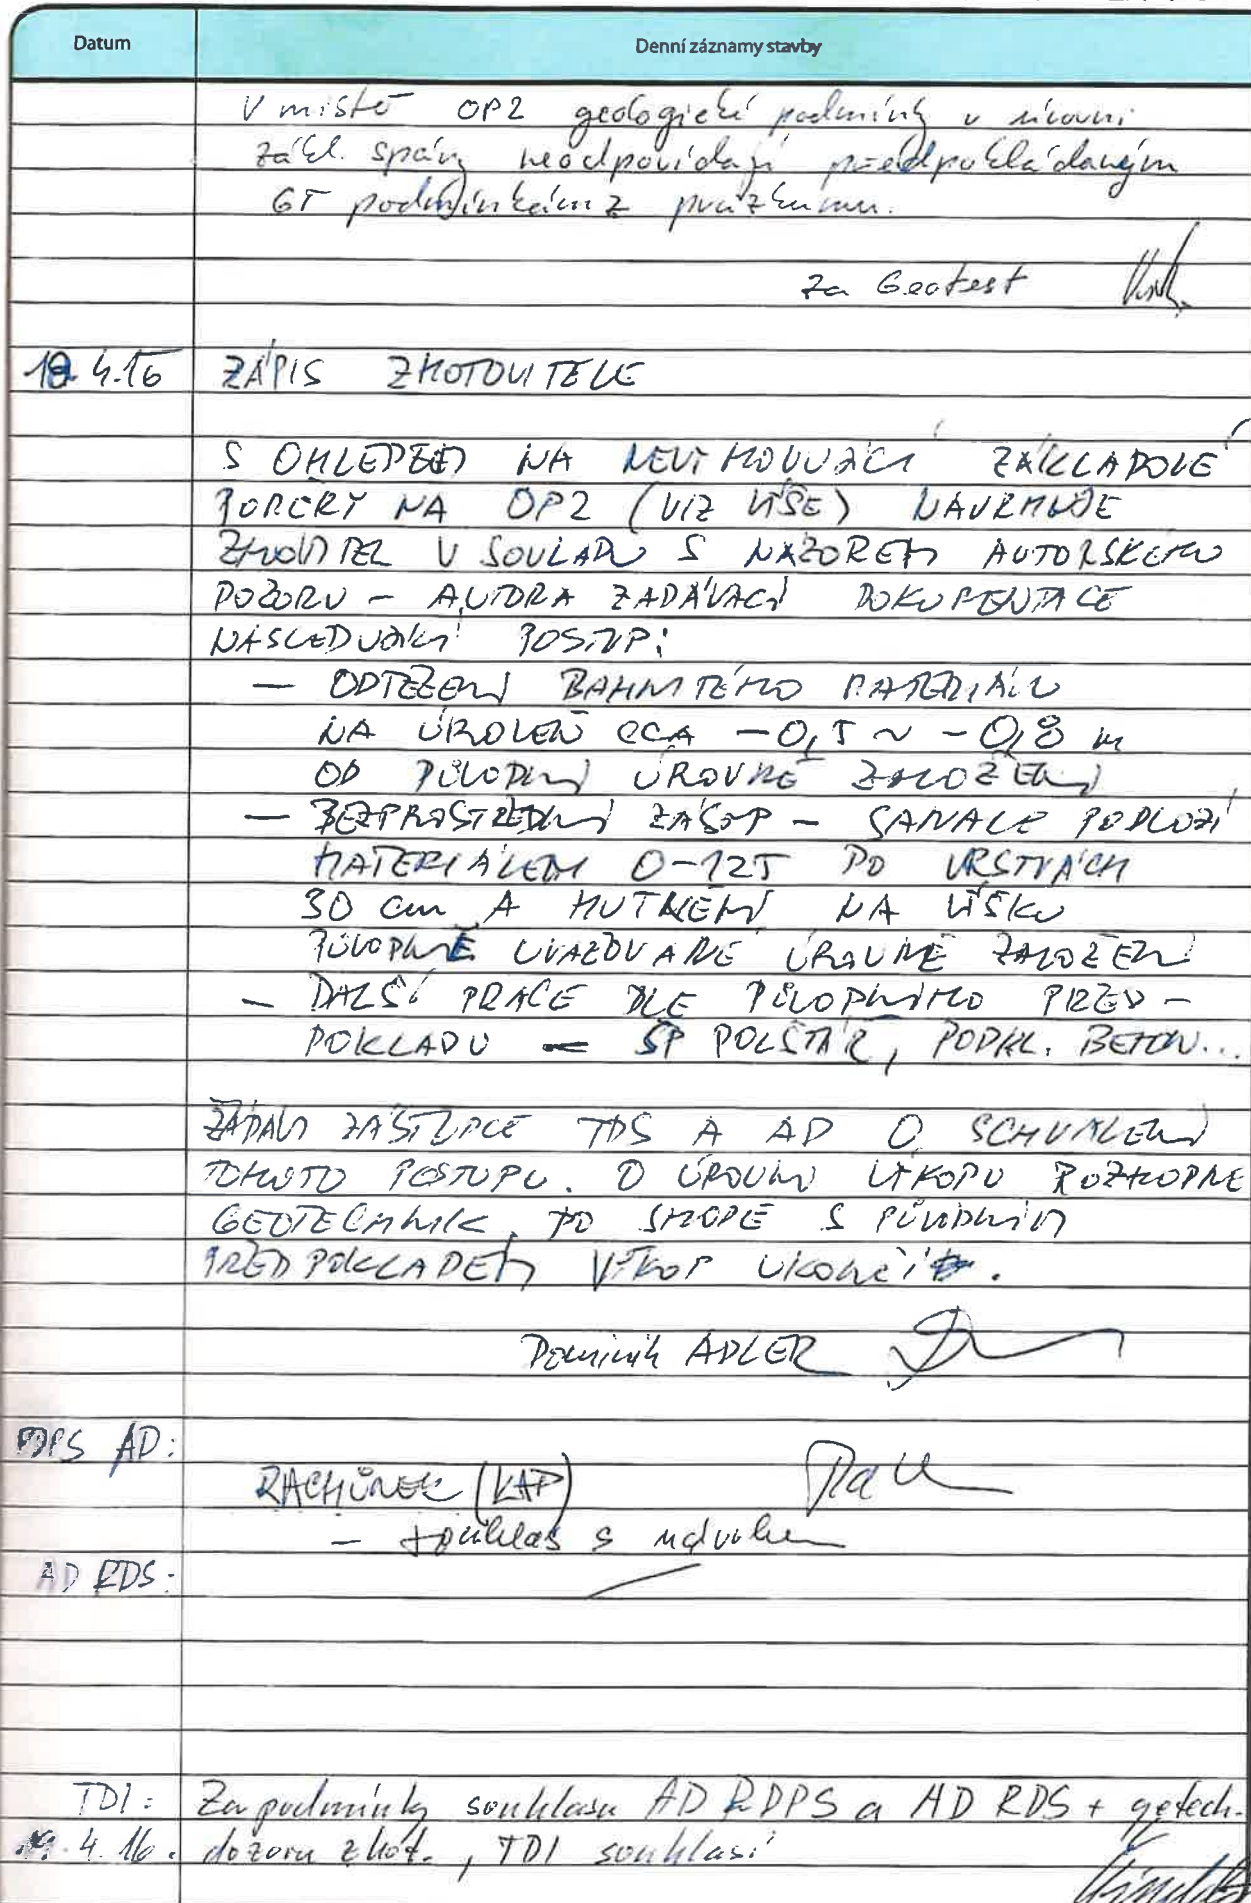 Datum
Denní záznamy stavby
V místě OP2 geologické podmínky v úrovni
zákl. spáry neodpovídají předpokládaným
GT podmínkám z průzkumu.
za Geotest
4.16 ZÁPIS ZHOTOVITELE
S OHLEDEM NA NEVYHOVUJÍCÍ ZÁKLADOVÉ
POMĚRY NA OP2 (VIZ VÝŠE) NAVRHUJE
ZHOTVITEL V SOULADU S NÁZOREM AUTORSKÉHO
DOZORU – AUTORA ZADÁVACÍ DOKUMENTACE
NÁSLEDUJÍCÍ POSTUP:
— ODTĚŽENÍ BAHNITÉHO MATERIÁLU
NA ÚROVEŇ CCA -0,5 ~ -0,8 m
OD PŮVODNÍ ÚROVNĚ ZALOŽENÍ
— BEZPROSTŘEDNÍ ZÁSYP – SANACE PODLOŽÍ
MATERIÁLEM 0-125 PO VRSTVÁCH
30 cm A HUTNĚNÍ NA VÝŠKU
PŮVODNĚ UVAŽOVANÉ ÚROVNĚ ZALOŽENÍ
– DALŠÍ PRÁCE DLE PŮVODNÍHO PŘED-
POKLADU – ŠP POLŠTÁŘ, PODKL. BETON...
ŽÁDÁM ZÁSTUPCE TDS A AD O SCHVÁLENÍ
TOHOTO POSTUPU. O ÚROVNI VÝKOPU ROZHODNE
GEOTECHNIK, PO SHODĚ S PŮVODNÍM
PŘEDPOKLADEM VÝKOP UKONČÍ.
Dominik ADLER
DPS AD:
RACHŮNEK (KAP)
– souhlas s návrhem
AD RDS:
TDI: Za podmínky souhlasu AD RDPS a AD RDS + geotech.
4.16. dozoru zhot., TDI souhlasí